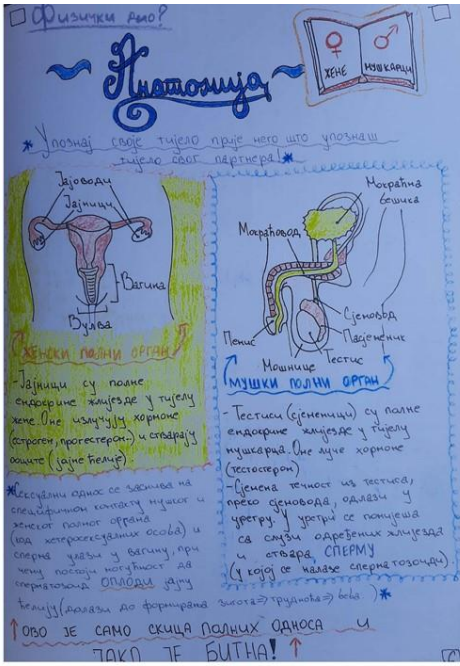 Физички дио?
Анатомија
ЖЕНЕ
МУШКАРЦИ
* Упознај своје тијело прије него што упознаш
тијело свог партнера! *
Јајоводи
Јајници
Вагина
Вулва
ЖЕНСКИ ПОЛНИ ОРГАН
- Јајници су полне
ендокрине жлијезде у тијелу
жене. Оне излучују хормоне
(естроген, прогестерон..) и стварају
ооците (јајне ћелије).
Мокраћна
бешика
Мокраћовод
Сјеновод
Пасјеменик
Тестис
Мошнице
Пенис
МУШКИ ПОЛНИ ОРГАН
- Тестиси (сјеменици) су полне
ендокрине жлијезде у тијелу
мушкарца. Оне луче хормоне
(тестостерон)
- Сјемена течност из тестиса,
преко сјеновода, одлази у
уретру. У уретри се понијеша
са слузи одређених жлијезда
и ствара СПЕРМУ
(у којој се налазе сперматозоиди)
* Сексуални однос се заснива на
специфичном контакту мушког и
женског полног органа
(код хетеросексуалних особа) и
сперма улази у вагину, при
чему постоји могућност да
сперматозоид ОПЛОДИ јајну
ћелију (долази до формирања зигота => трудноћа => беба) *
↑ ОВО ЈЕ САМО СКИЦА ПОЛНИХ ОДНОСА И
ЈАКО ЈЕ БИТНА! ↑